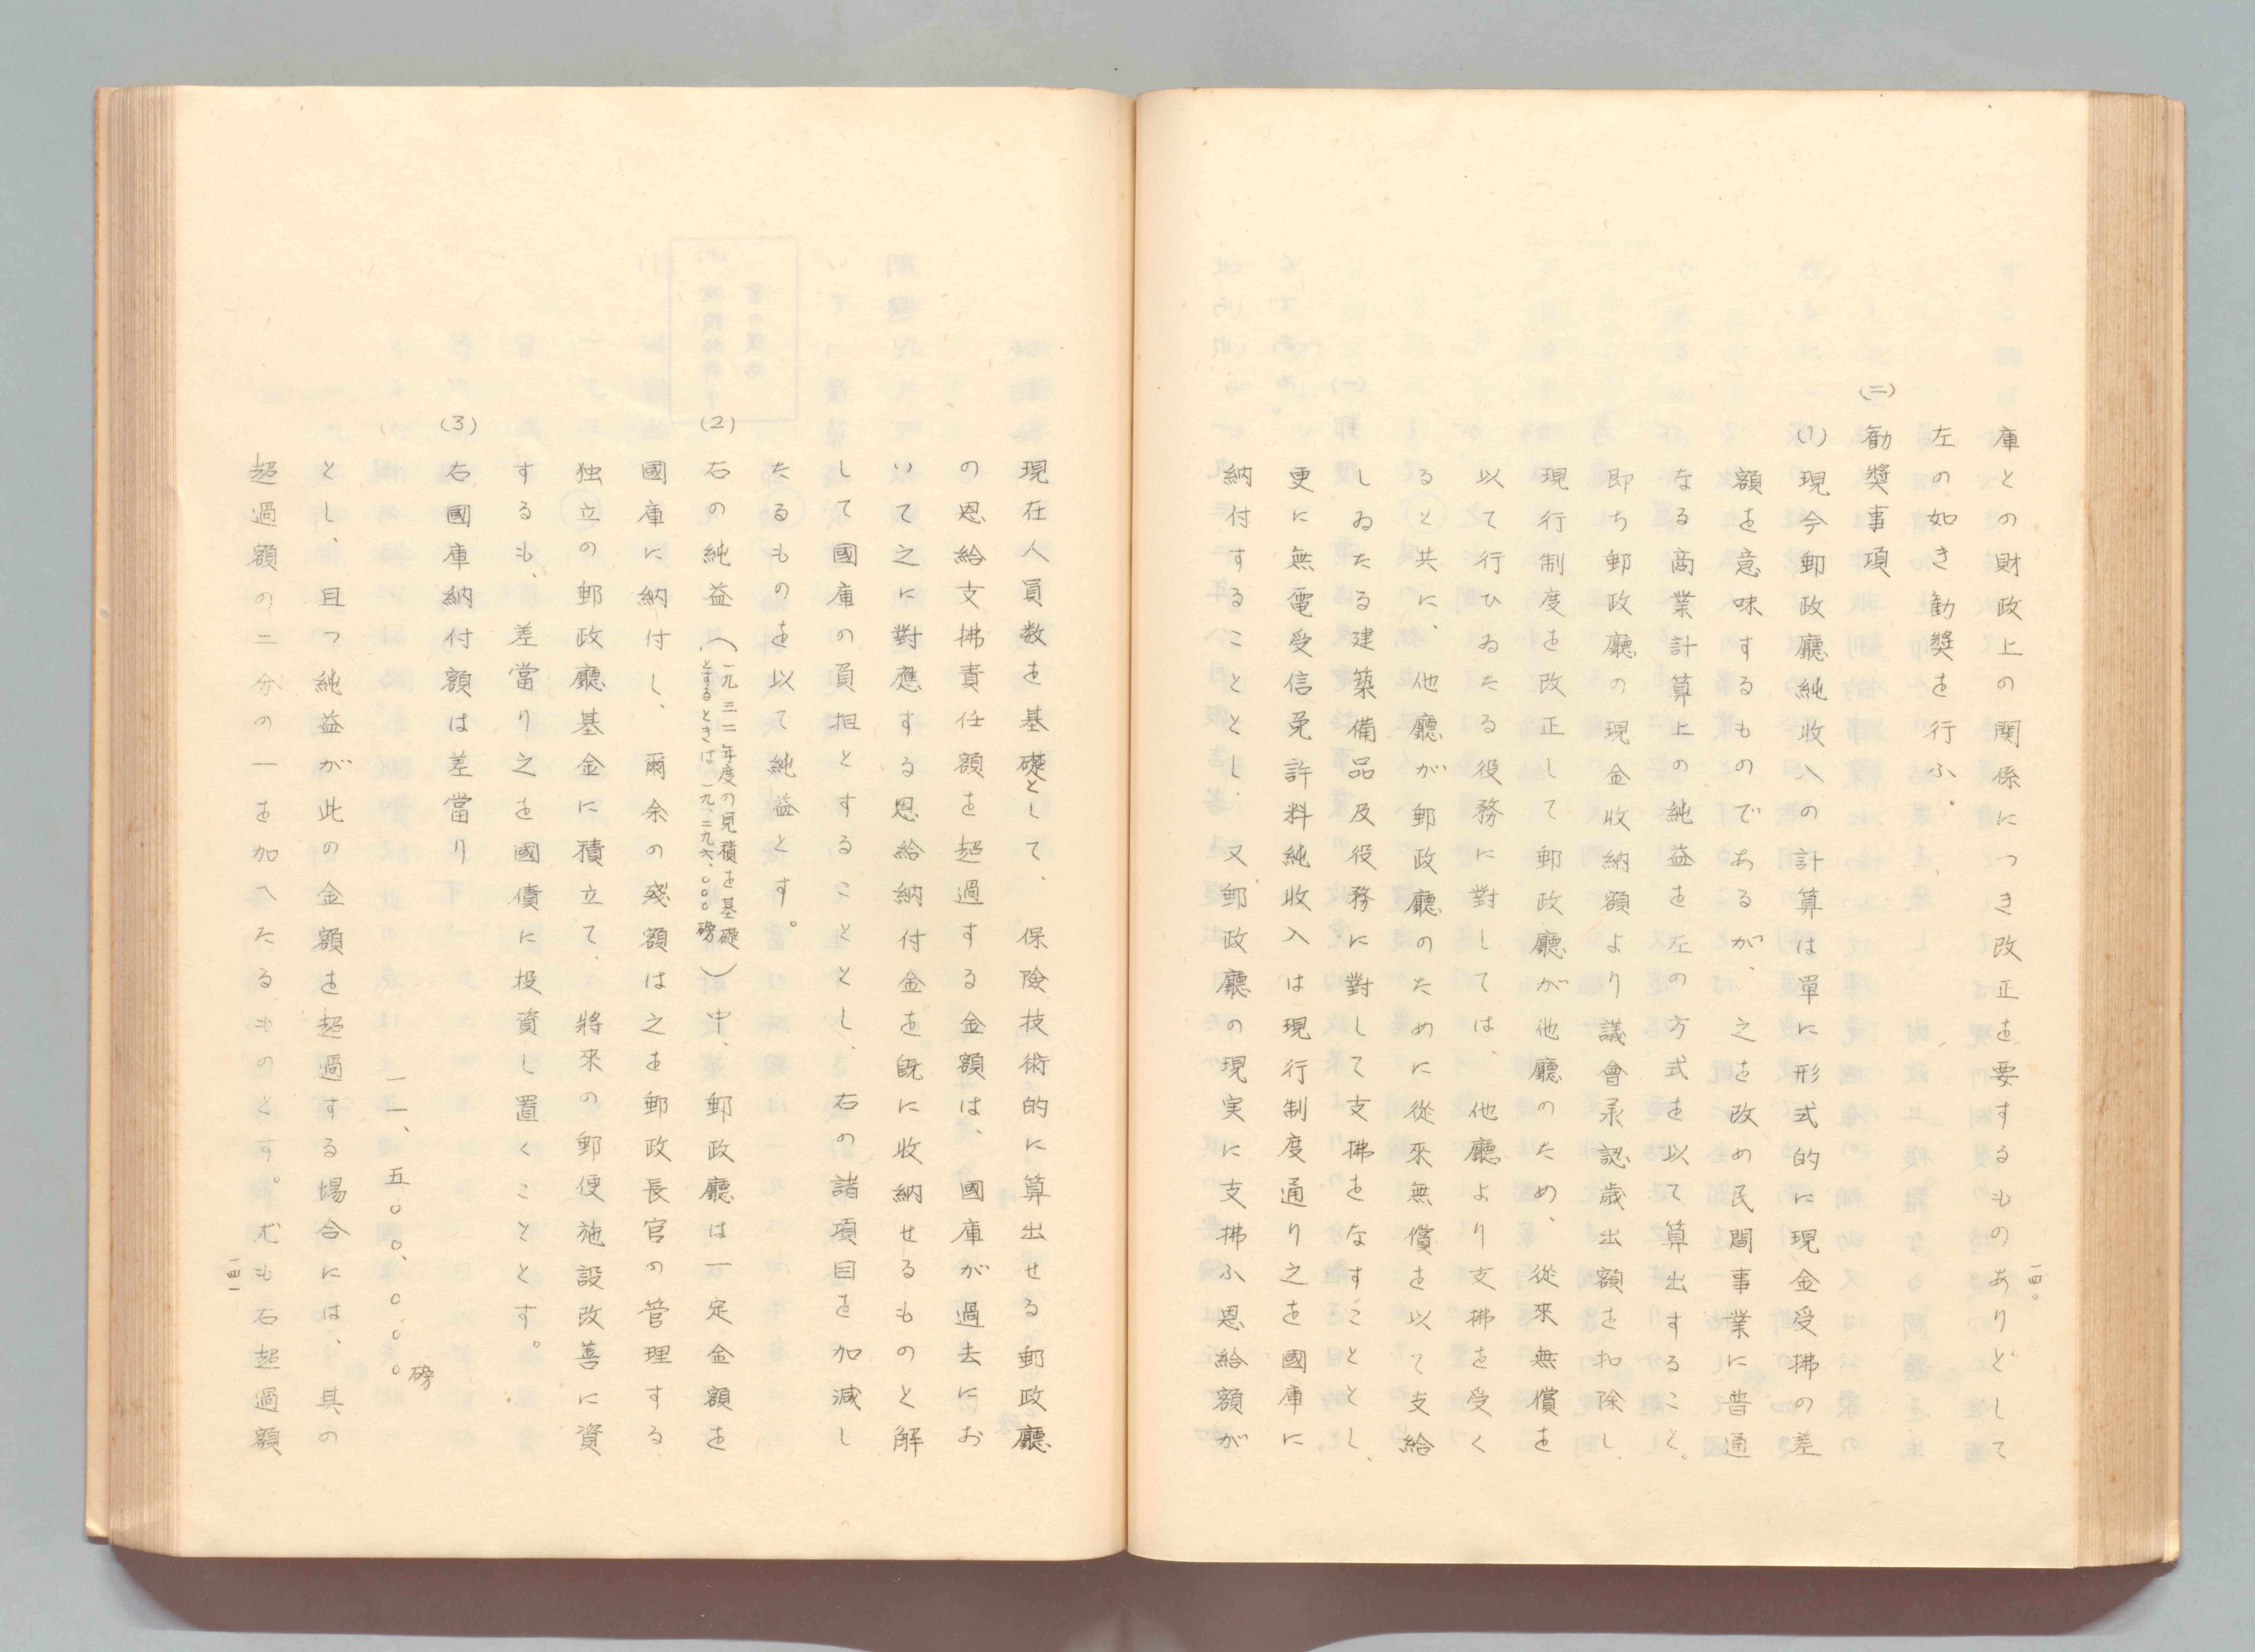 一四〇
庫との財政上の関係につき改正を要するものありとして
左の如き勧奬を行ふ。
(二) 勧奬事項
(1) 現今郵政廳純收入の計算は單に形式的に現金受拂の差
額を意味するものであるが、之を改め民間事業に普通
なる商業計算上の純益を左の方式を以て算出すること。
即ち郵政廳の現金收納額より議會承認歳出額を扣除し、
現行制度を改正して郵政廳が他廳のため、從來無償を
以て行ひゐたる役務に對しては、他廳より支拂を受く
ると共に、他廳が郵政廳のために從來無償を以て支給
しゐたる建築備品及役務に對して支拂をなすこととし、
更に無電受信免許料純收入は現行制度通り之を國庫に
納付することとし、又郵政廳の現実に支拂ふ恩給額が
現在人員数を基礎として、保険技術的に算出せる郵政廳
の恩給支拂責任額を超過する金額は、國庫が過去にお
いて之に對應する恩給納付金を既に收納せるものと解
して國庫の負担とすることとし、右の諸項目を加減し
たるものを以て純益とす。
(2) 右の純益(一九三二年度の見積を基礎とするときは一九、二九六、〇〇〇磅)中、郵政廳は一定金額を
國庫に納付し、爾余の残額は之を郵政長官の管理する
独立の郵政廳基金に積立て、將來の郵便施設改善に資
するも、差當り之を國債に投資し置くこととす。
(3) 右國庫納付額は差當り
一一、五〇〇、〇〇〇磅
とし、且つ純益が此の金額を超過する場合には、其の
超過額の二分の一を加へたるものとす。尤も右超過額
一四一